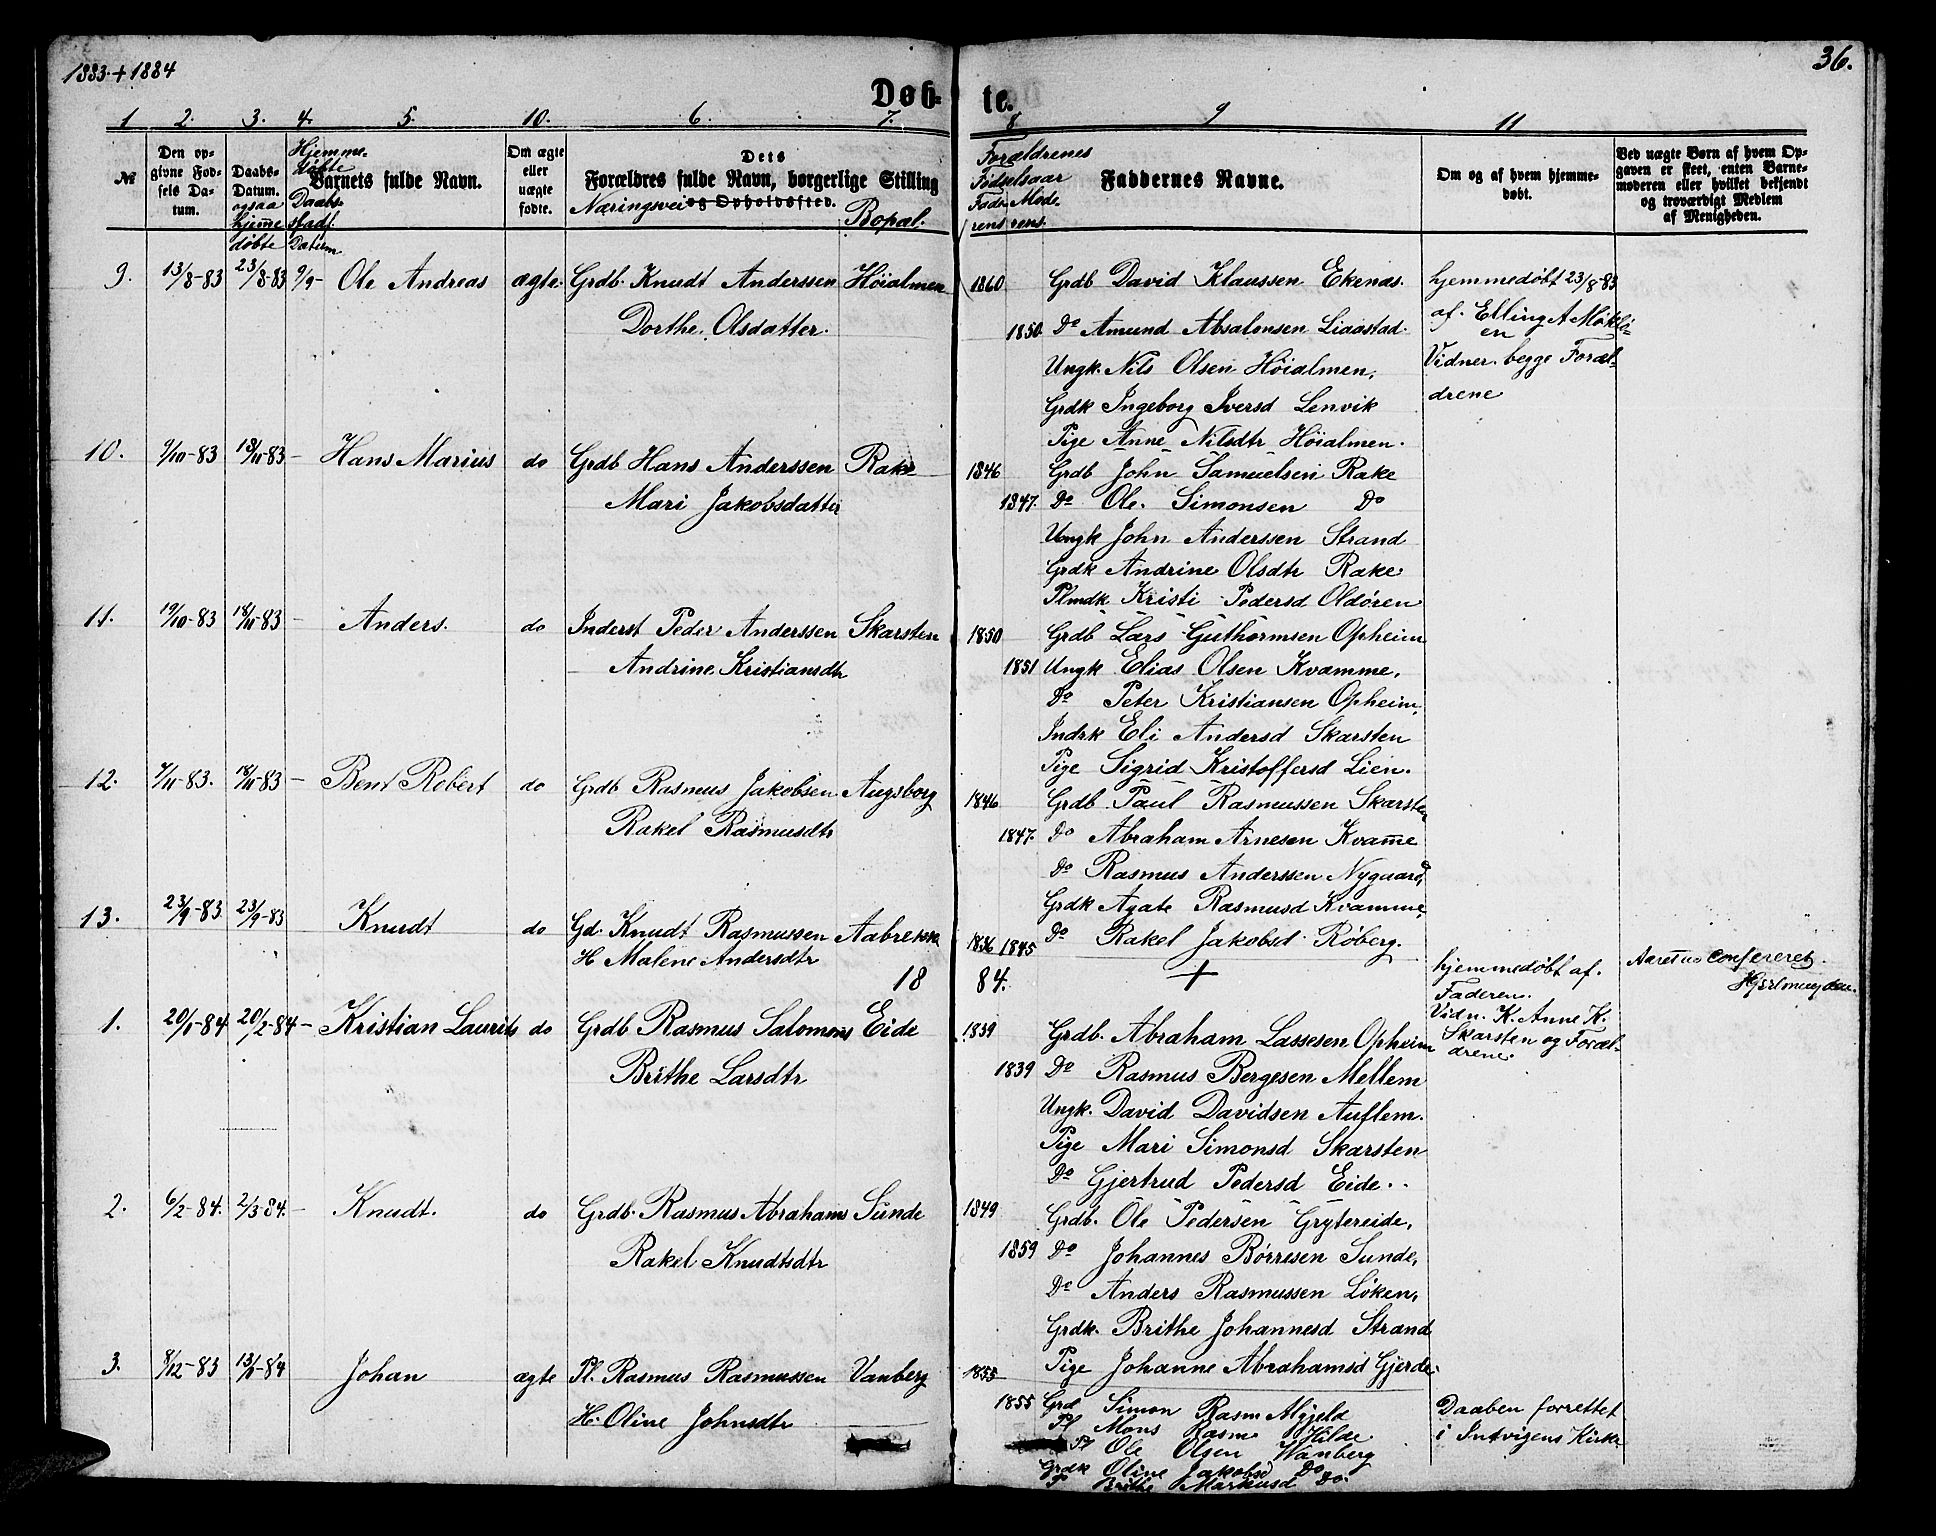 1883 + 1884
36.
Døb-te.
1 2. 3. 4. 5. 10. 6. 7. 8 9 11
№
Den op-
givne Fød-
sels Da-
tum.
Daabs-
Datum.
ogsaa
hjem̄e
døbte
Hjemme-
døbte
Daabs-
stadf.
Datum
Barnets fulde Navn.
Om ægte
eller
uægte
fødte.
Dets
Forældres fulde Navn, borgerlige Stilling
Næringsvei og Opholdssted.
Bopæl.
Forældrenes
Fødselsaar
Fade- Mode-
rens rens.
Faddernes Navne.
Om og af hvem hjemme-
døbt.
Ved uægte Børn af hvem Op-
gaven er skeet, enten Barne-
moderen eller hvilket bekjendt
og troværdigt Medlem
af Menigheden.
9. 13/8-83 23/8-83 9/9- Ole Andreas ægte. Grdb. Knudt Anderssen Höialmen 1860 Grdb David Klaussen Ekenæs. hjemmedöbt 23/8-83
Dorthe Olsdatter. 1850 Do Amund Absalonsen Liaastad. af. Elling A Möklö-
en
Ungk. Nils Olsen Höialmen, Vidner begge Foræl-
Grdk Ingeborg Iversd Lenvik drene
Pige Anne Nilsdtr Höialmen.
10. 9/10-83 18/11-83 - Hans Marius do Grdb Hans Anderssen Rake 1846 Grdb John Samuelsen Rake
Mari Jakobsdatter 1847. Do Ole. Simonsen Do
Ungk John Anderssen Strand
Grdk Andrine Olsdtr Rake
Plmdk Kristi Pedersd Oldören
11. 19/10-83 18/11-83 - Anders. do Inderst Peder Anderssen Skarsten 1850 Grdb Lars Guthormsen Opheim
Andrine Kristiansdtr 1851 Ungk Elias Olsen Kvamme,
Do Peter Kristiansen Opheim,
Indrk Eli Andersd Skarsten
Pige Sigrid Kristoffersd Lien.
12. 7/11-83. 18/11-83 - Bent Robert do Grdb Rasmus Jakobsen Augsborg 1846 Grdb Paul Rasmussen Skarsten
Rakel Rasmusdtr 1847. Do Abraham Arnesen Kvam̄e
Do Rasmus Anderssen Nygaard,
Grdk Agate Rasmusd Kvamme,
13. 23/9-83 23/9-83 Knudt do Gd. Knudt Rasmussen Aabrekk 1836 1845 Do Rakel Jakobsd Röberg.
H Malene Andersdtr + hjemmedöbt af.
Faderen.
Vidn. K. Anne K.
Skarsten og Foræl-
drene.
confereret
18 84.
1. 20/1-84 20/2-84 - Kristian Laurits do Grdb Rasmus Salomons Eide 1839 Grdb. Abraham Lassesen Opheim
Brithe Larsdtr 1839 Do Rasmus Bergesen Mellem
Ungk. David Davidsen Auflem.
Pige Mari Simonsd Skarsten
Do Gjertrud Pedersd Eide.
2. 6/2-84. 2/3-84. - Knudt. do Grdb. Rasmus Abrahams Sunde 1849 Grdb. Ole Pedersen Grytereide,
Rakel Knudtsdtr 1859 Do Johannes Börresen Sunde,
Do Anders Rasmussen Löken,
Grdk. Brithe Johannesd Strand
Pige Johanne Abrahamsd Gjerde.
3. 8/12-83 13/1-84 Johan ægte Pl. Rasmus Rasmussen Vanberg 1855
H. Oline Johnsdtr 1855 Grd Simon Rasm Algjeld Daaben forrettet
Pl Mons Rasm Hilde i Indvigens Kirke
Pl Ole Olsen Wanberg
Grdk Oline Jakobsd Do
P Brithe Markusd Do.